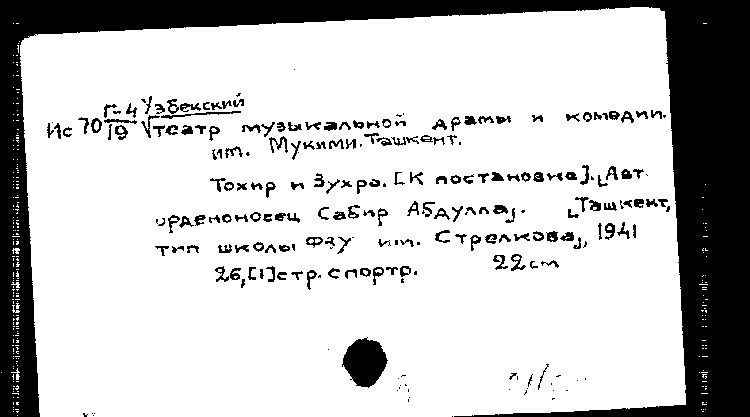 Г-4 Узбекский
Ис 70 19 √театр музыкальной драмы и комедии.
им. Мукими. Ташкент.
Тохир и Зухра. [К постановке]. [Авт.
орденоносец Сабир Абдулла]. [Ташкент,
тип школы ФЗУ им. Стрелкова], 1941
26,[1]стр. с портр. 22см